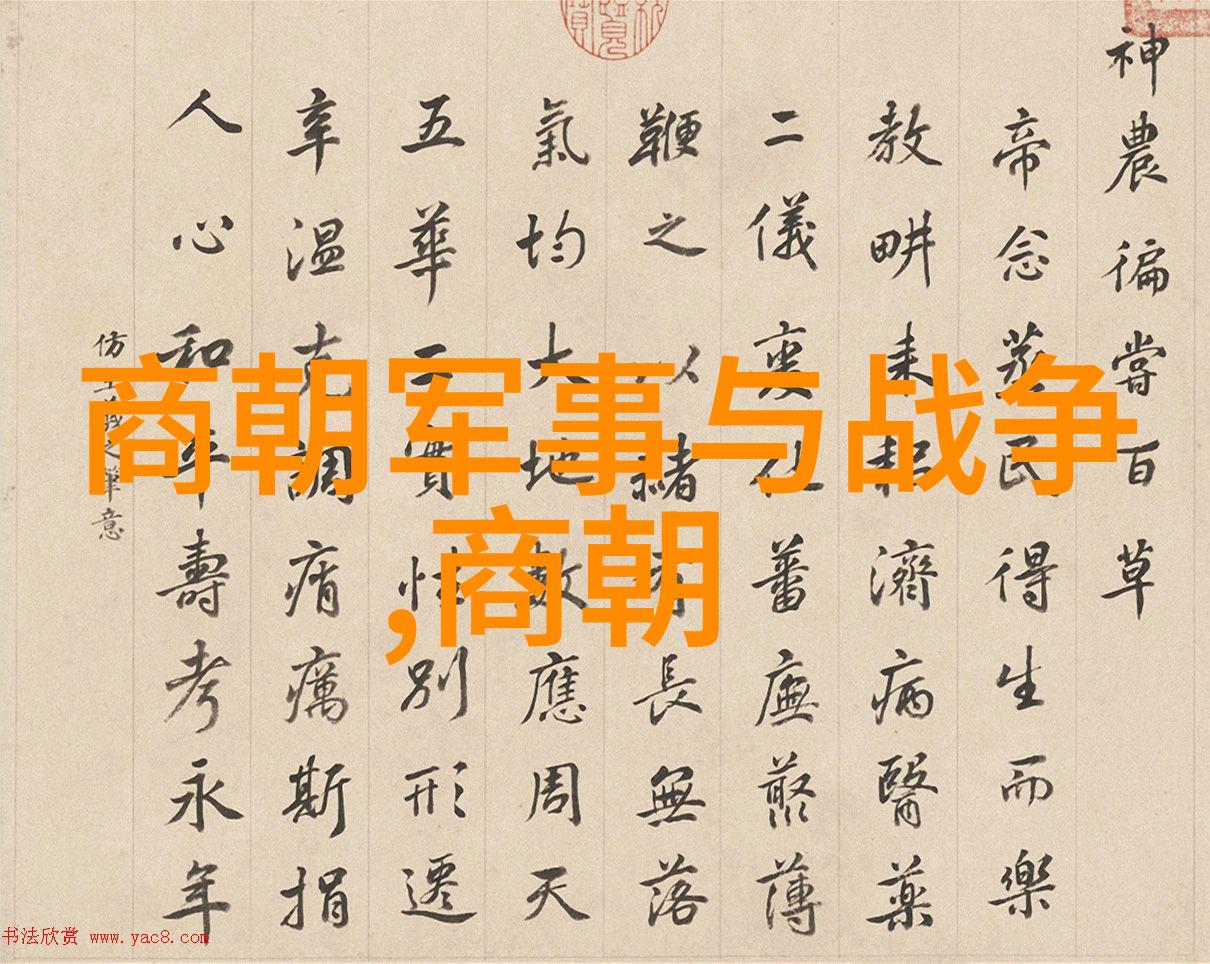 商朝军事与战争
,商朝
神農徧嘗百草
帝念蒸民得生而樂
教畊耒耜濟病醫藥
二儀化蕃廡薄
鞭之以赭長無落
氣均大地數應周天
五華實性别形遷
辛溫克調痟癘斯捐
人心和平壽考永年
仿王羲之筆意
书法欣赏 www.yac8.com